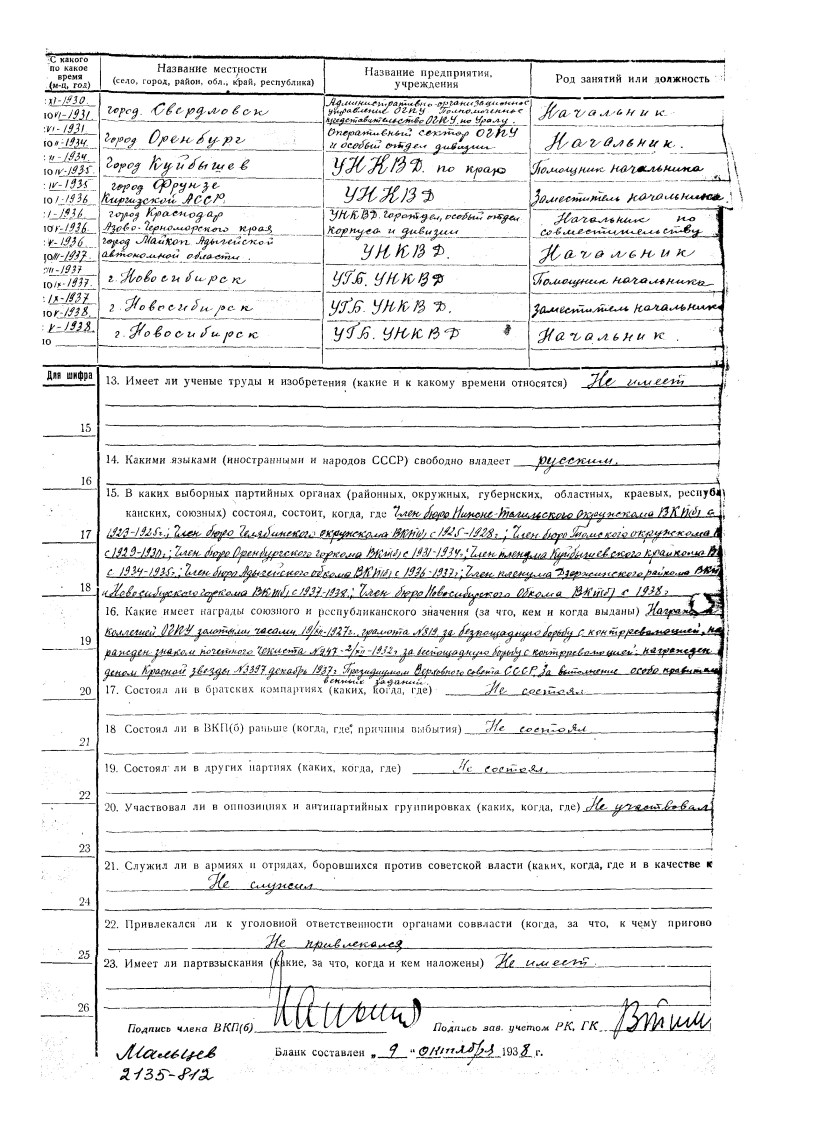 С какого по какое время (м-ц, год)
Название местности
(село, город, район, обл., край, республика)
Название предприятия, учреждения
Род занятий или должность
XI-1930
10 VI-1931
город Свердловск
Административно-организационное
управление ОГПУ Полномочное
представительство ОГПУ, по Уралу.
Начальник
VI-1931
10 II-1934
город Оренбург
Оперативный сектор ОГПУ
и особый отдел дивизии
Начальник.
II-1934
10 IV-1935
город Куйбышев
УНКВД. по краю
Помощник начальника
IV-1935
10 I-1936
город Фрунзе
Киргизской АССР.
УНКВД
Заместитель начальника.
I-1936
10 V-1936
город Краснодар
Азово-Черноморского края
УНКВД. горотдел, особый отдел
корпуса и дивизии
Начальник по
совместительству
V-1936
город Майкоп Адыгейской
автономной области.
УНКВД.
Начальник
г. Новосибирск
УГБ. УНКВД
Помощник начальника
IX-1937
10 V-1938
г. Новосибирск
УГБ. УНКВД.
Заместитель начальника
V-1938.
10
г. Новосибирск
УГБ. УНКВД
Начальник.
Для шифра
13. Имеет ли ученые труды и изобретения (какие и к какому времени относятся) Не имеет
15
14. Какими языками (иностранными и народов СССР) свободно владеет русским.
16
15. В каких выборных партийных органах (районных, окружных, губернских, областных, краевых, республ
канских, союзных) состоял, состоит, когда, где Член бюро Нижне-Тагильского Окружкома ВКП(б) с
17
1923-1925г.; Член бюро Челябинского окружкома ВКП(б) с 1925-1928г; Член бюро Томского окружкома В
с 1929-1930г.; Член бюро Оренбургского горкома ВКП(б) с 1931-1934г.; Член пленума Куйбышевского крайкома ВК
с 1934-1935г.; Член бюро Адыгейского обкома ВКП(б) с 1936-1937г; Член пленума Дзержинского райкома ВКП
18
и Новосибирского горкома ВКП(б) с 1937-1938; Член бюро Новосибирского Обкома ВКП(б) с 1938г.
16. Какие имеет награды союзного и республиканского значения (за что, кем и когда выданы) Награжд
19
коллегией ОГПУ золотыми часами 19/XII-1927г. грамота №819 за безпощадную борьбу с контрреволюцией, на
ражден знаком почетного чекиста №947 за беспощадную борьбу с контрреволюцией. награжден
деном Красной звезды №3397 декабрь 1937г. Президиумом Верховного совета СССР. За выполнение особо правит
венных заданий.
20
17. Состоял ли в братских компартиях (каких, когда, где) Не состоял
18 Состоял ли в ВКП(б) раньше (когда, где, причины выбытия) Не состоял
21
19. Состоял ли в других партиях (каких, когда, где) Не состоял.
22
20. Участвовал ли в оппозициях и антипартийных группировках (каких, когда, где) Не участвовал
23
21. Служил ли в армиях и отрядах, боровшихся против советской власти (каких, когда, где и в качестве к
Не служил
24
22. Привлекался ли к уголовной ответственности органами соввласти (когда, за что, к чему пригово
Не привлекался
25
23. Имеет ли партвзыскания (какие, за что, когда и кем наложены) Не имеет.
26
Подпись члена ВКП(б)
Подпись зав. учетом РК, ГК
Мальцев
2135-812
Бланк составлен „ 9 " октября 1938 г.